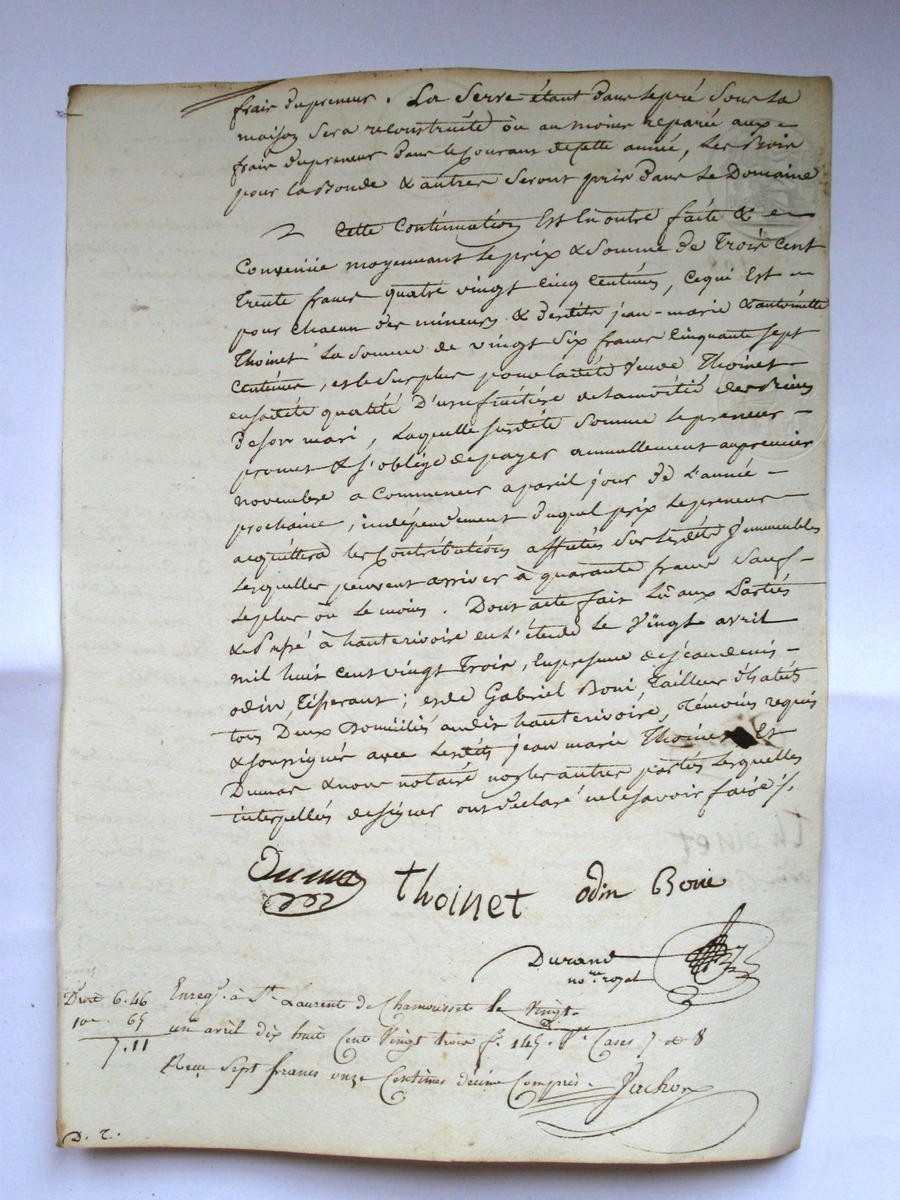 frais du preneur. La Serve étant dans le pré sous la
maison sera reconstruite ou au moins reparée aux
frais du preneur dans le courant de cette année, les Bois
pour la Bonde & autres seront pris dans le Domaine
Cette Continuation Est En outre faite & 
Convenüe moyennant le prix & Somme de Trois Cent
Trente francs quatre vingt Cinq Centimes, ce qui Est
pour chacun des mineurs & desdits jean-marie & antoinette
Thoinet La Somme de vingt Six francs Cinquante sept
Centimes, et le Surplus pour ladite Veuve Thoinet
en sadite qualité D'usufruitière de la moitié des Biens
De Son mari, Laquelle susdite Somme le preneur
promet & s'oblige de payer annuellement au premier
novembre a Commencer a pareil jour de L'année
prochaine, indépendament duquel prix Le preneur
acquittera les Contributions affectées Sur lesdits immeubles
lesquelles peuvent arriver à quarante francs Sauf
le plus ou le moins. Dont acte fait Lû aux Parties
& passé à hauterivoire en l'étude Le Vingt avril
mil huit cent vingt Trois, En presence de jean denis
odin, Tisserant; et de Gabriel Boni, Tailleur d'habits
tous Deux Domiciliés audit hauterivoire, témoins requis
& soussignés avec lesdits jean marie Thoinet Et
Dumas & nous notaire non les autres parties lesquelles
interpellés de signer ont déclaré ne le savoir faire
Dumas Thoinet odin Boni
Durand
no.re royal
Droit 6.46 Enreg.é à St. Laurent de Chamousset le Vingt
10e 65 un avril dix huit Cent Vingt trois f.o 145. V.o Cases 7 et 8
7.11
Reçu Sept francs onze Centimes décime Compris.
D. T.